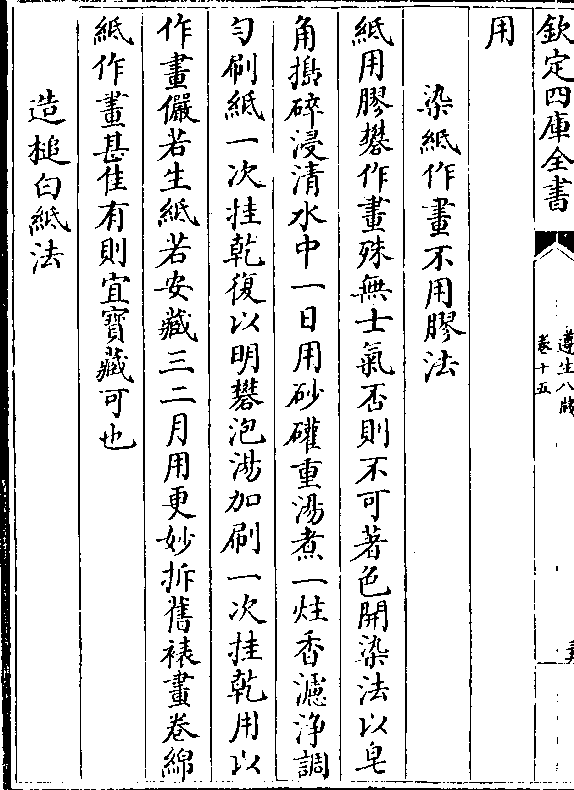 欽定四庫全書
遵生八牋
卷十五
用
染紙作畫不用膠法
紙用膠礬作畫殊無士氣否則不可著色開染法以皂
角搗碎浸清水中一日用砂罐重湯煮一炷香濾浄調
勻刷紙一次挂乾復以明礬泡湯加刷一次挂乾用以
作畫儼若生紙若安藏三二月用更妙拆舊裱畫卷綿
紙作畫甚佳有則宜寶藏可也
造槌白紙法